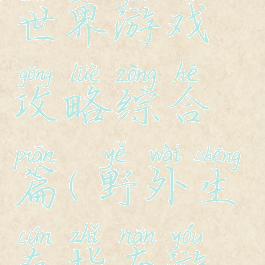 世界游戏
gōng lüè zōng hé
攻略综合
piān yě wài shēng
篇(野外生
cún zhǐ nán yóu
存指南游